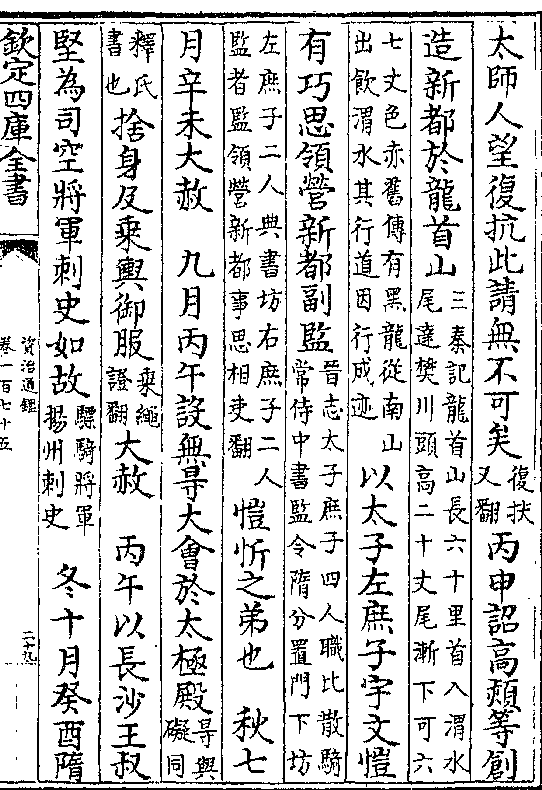 太師人望復抗此請無不可矣復扶又翻丙申詔高熲等創
造新都於龍首山三秦記龍首山長六十里首入渭水尾達樊川頭高二十丈尾漸下可六
七丈色赤舊傳有黑龍從南山出飲渭水其行道因行成迹以太子左庶子宇文愷
有巧思領營新都副監晉志太子庶子四人職比散騎常侍中書監令隋分置門下坊
左庶子二人典書坊右庶子二人監者監領營新都事思相吏翻愷忻之弟也 秋七
月辛未大赦 九月丙午設無㝵大會於太極殿㝵與礙同
釋氏書也捨身及乘輿御服乘繩證翻大赦 丙午以長沙王叔
堅為司空將軍刺史如故驃騎將軍揚州刺史 冬十月癸酉隋
欽定四庫全書
資治通鑑
卷一百七十五
二十九